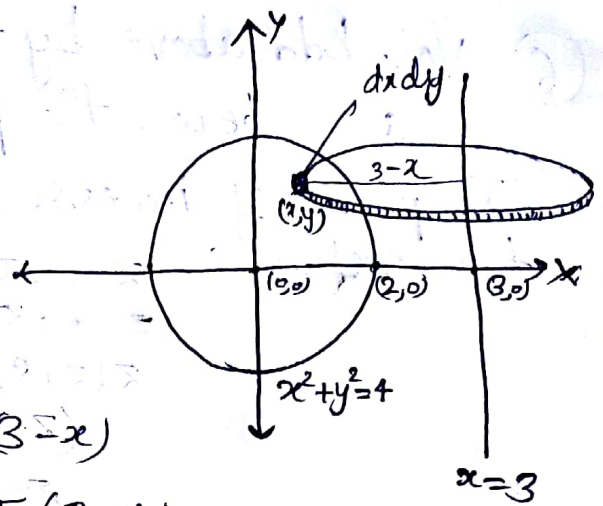 Y
dxdy
3-x
(x,y)
(0,0)
(2,0)
(3,0)
X
x²+y²=4
3-x)
x=3